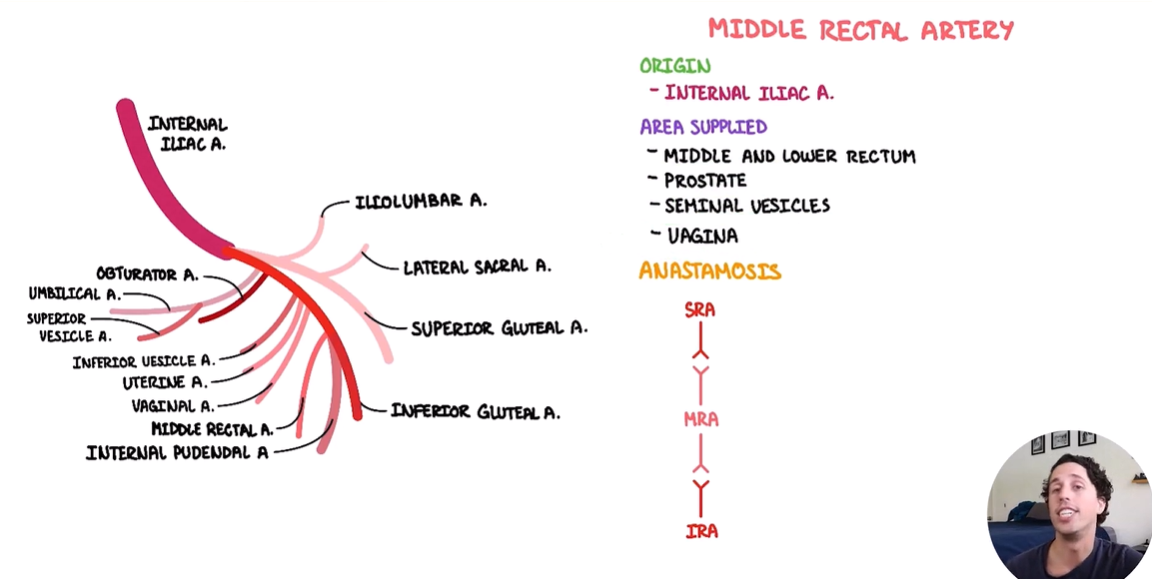 MIDDLE RECTAL ARTERY
ORIGIN
- INTERNAL ILIAC A.
AREA SUPPLIED
- MIDDLE AND LOWER RECTUM
- PROSTATE
- SEMINAL VESICLES
- VAGINA
ANASTAMOSIS
SRA
MRA
IRA
INTERNAL
ILIAC A.
ILIOLUMBAR A.
LATERAL SACRAL A.
SUPERIOR GLUTEAL A.
INFERIOR GLUTEAL A.
OBTURATOR A.
UMBILICAL A.
SUPERIOR
VESICLE A.
INFERIOR VESICLE A.
UTERINE A.
VAGINAL A.
MIDDLE RECTAL A.
INTERNAL PUDENDAL A